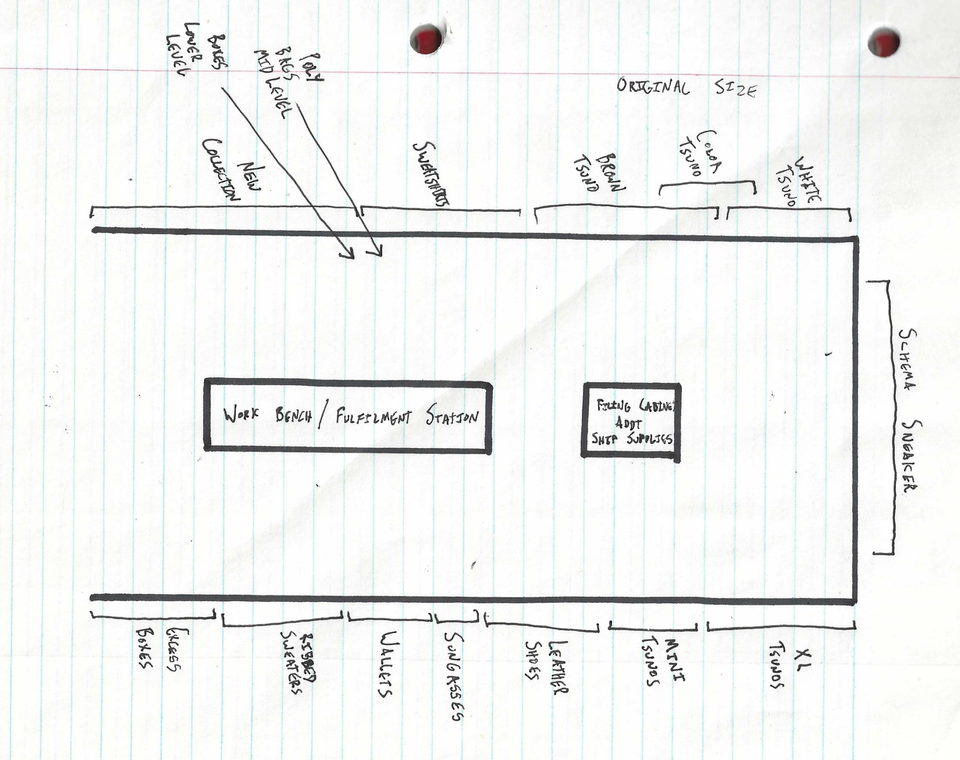 ORIGINAL SIZE
BOXES
LOWER
LEVEL
POLY
BAGS
MID LEVEL
NEW
COLLECTION
SWEATSHIRTS
BROWN
TSUNO
COLOR
TSUNO
WHITE
TSUNO
SCHEMA SNEAKER
WORK BENCH / FULFILMENT STATION
FILING CABINET
ADDT
SHIP SUPPLIES
EXCEES
BOXES
RIBBED
SWEATERS
WALLETS
SUNGASSES
LEATHER
SHOES
MINI
TSUNOS
XL
TSUNOS